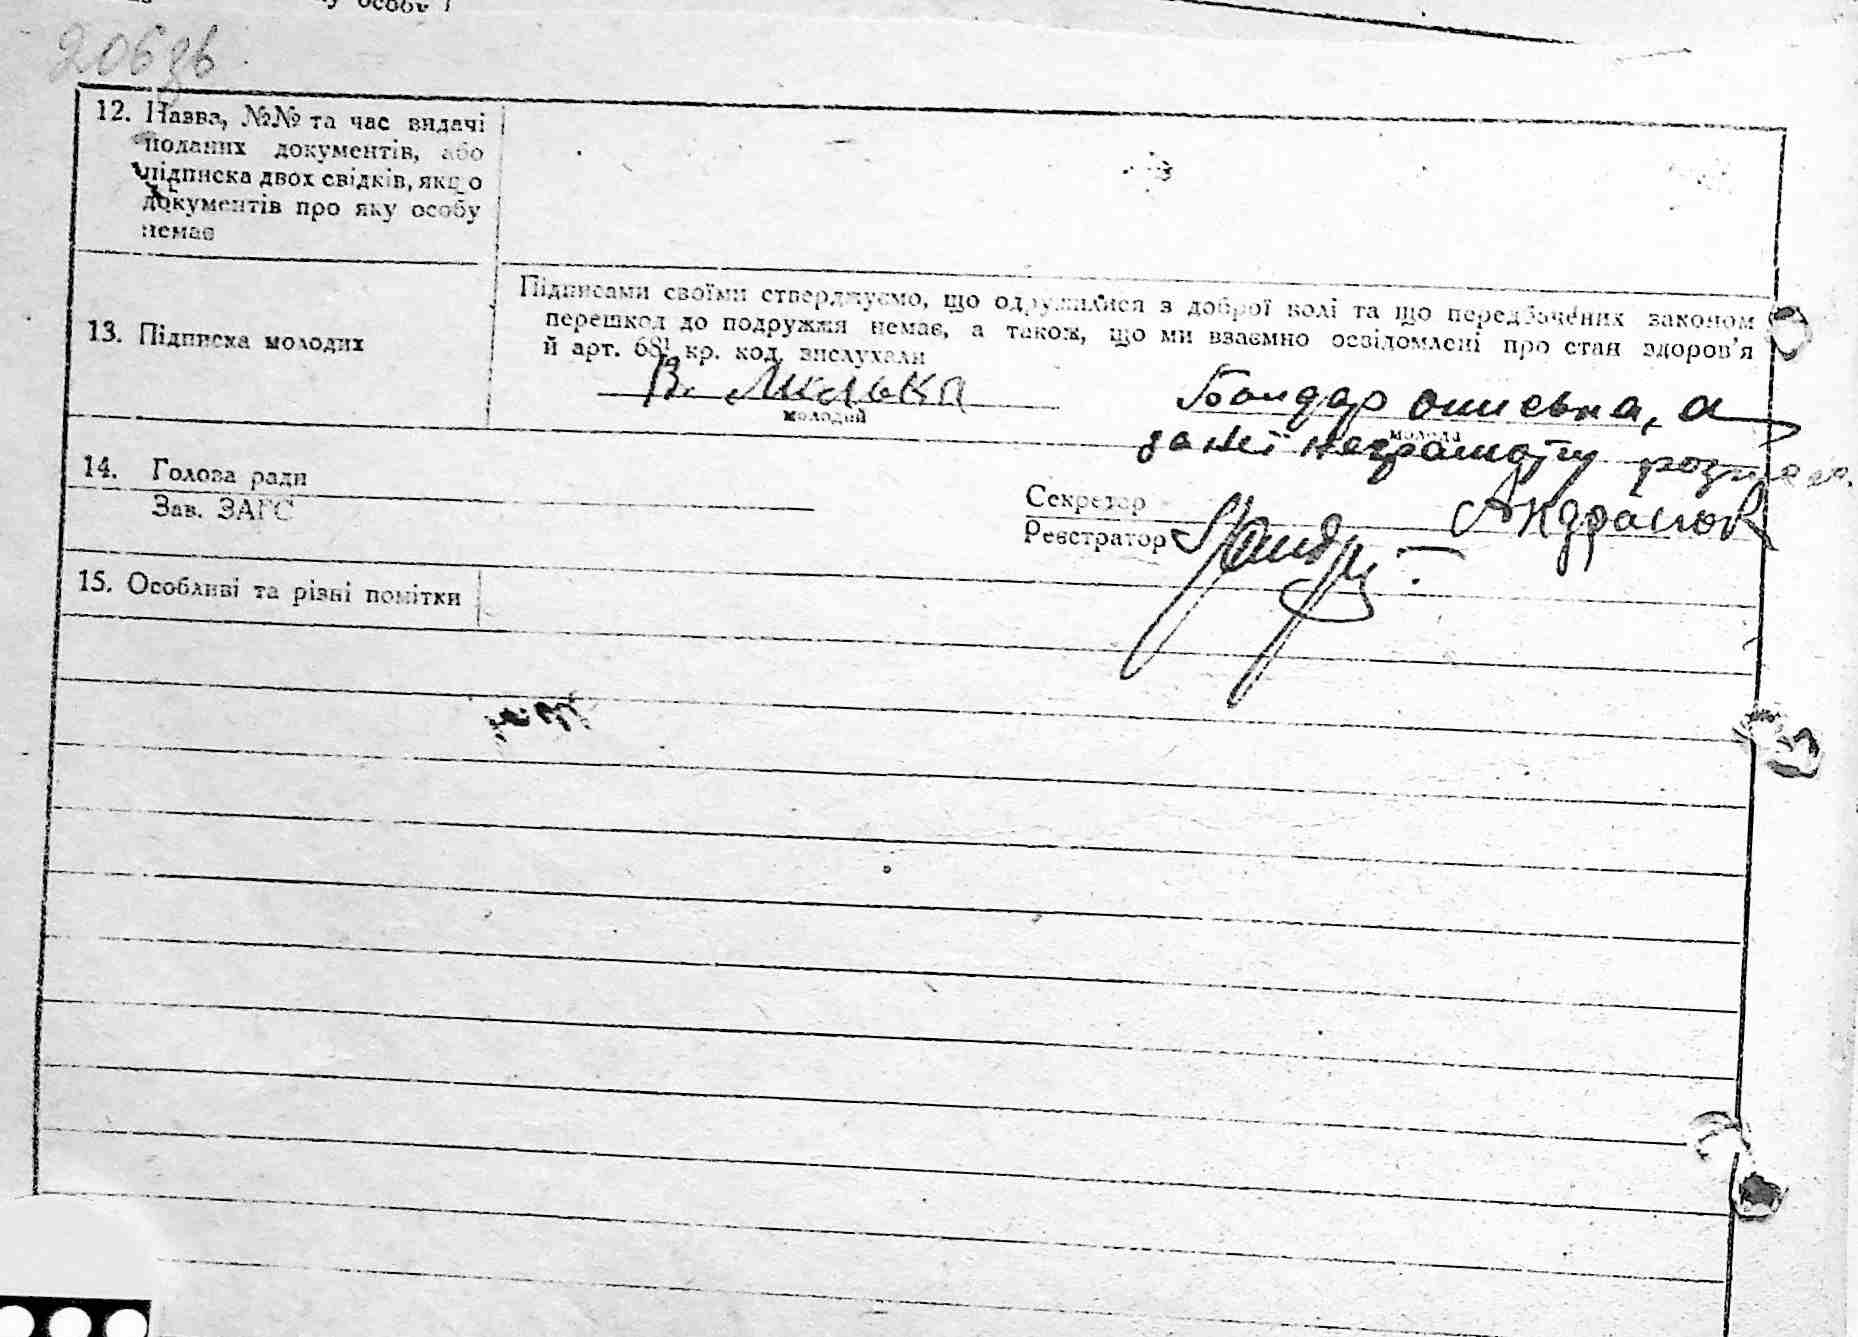 особу
206зв
12. Назва, №№ та час видачі
поданих документів, або
підписка двох свідків, якщо
документів про яку особу
немає
13. Підписка молодих
Підписами своїми стверджуємо, що одружилися з доброї волі та що передбачених законом
перешкод до подружжя немає, а також, що ми взаємно освідомлені про стан здоров'я
й арт. 68¹ кр. код. вислухали
В. Мілька
молодий
Бондар а
молода
за неї неграмотну
14. Голова ради
Зав. ЗАГС
Секретар
Реєстратор
Андросюк
15. Особливі та різні помітки